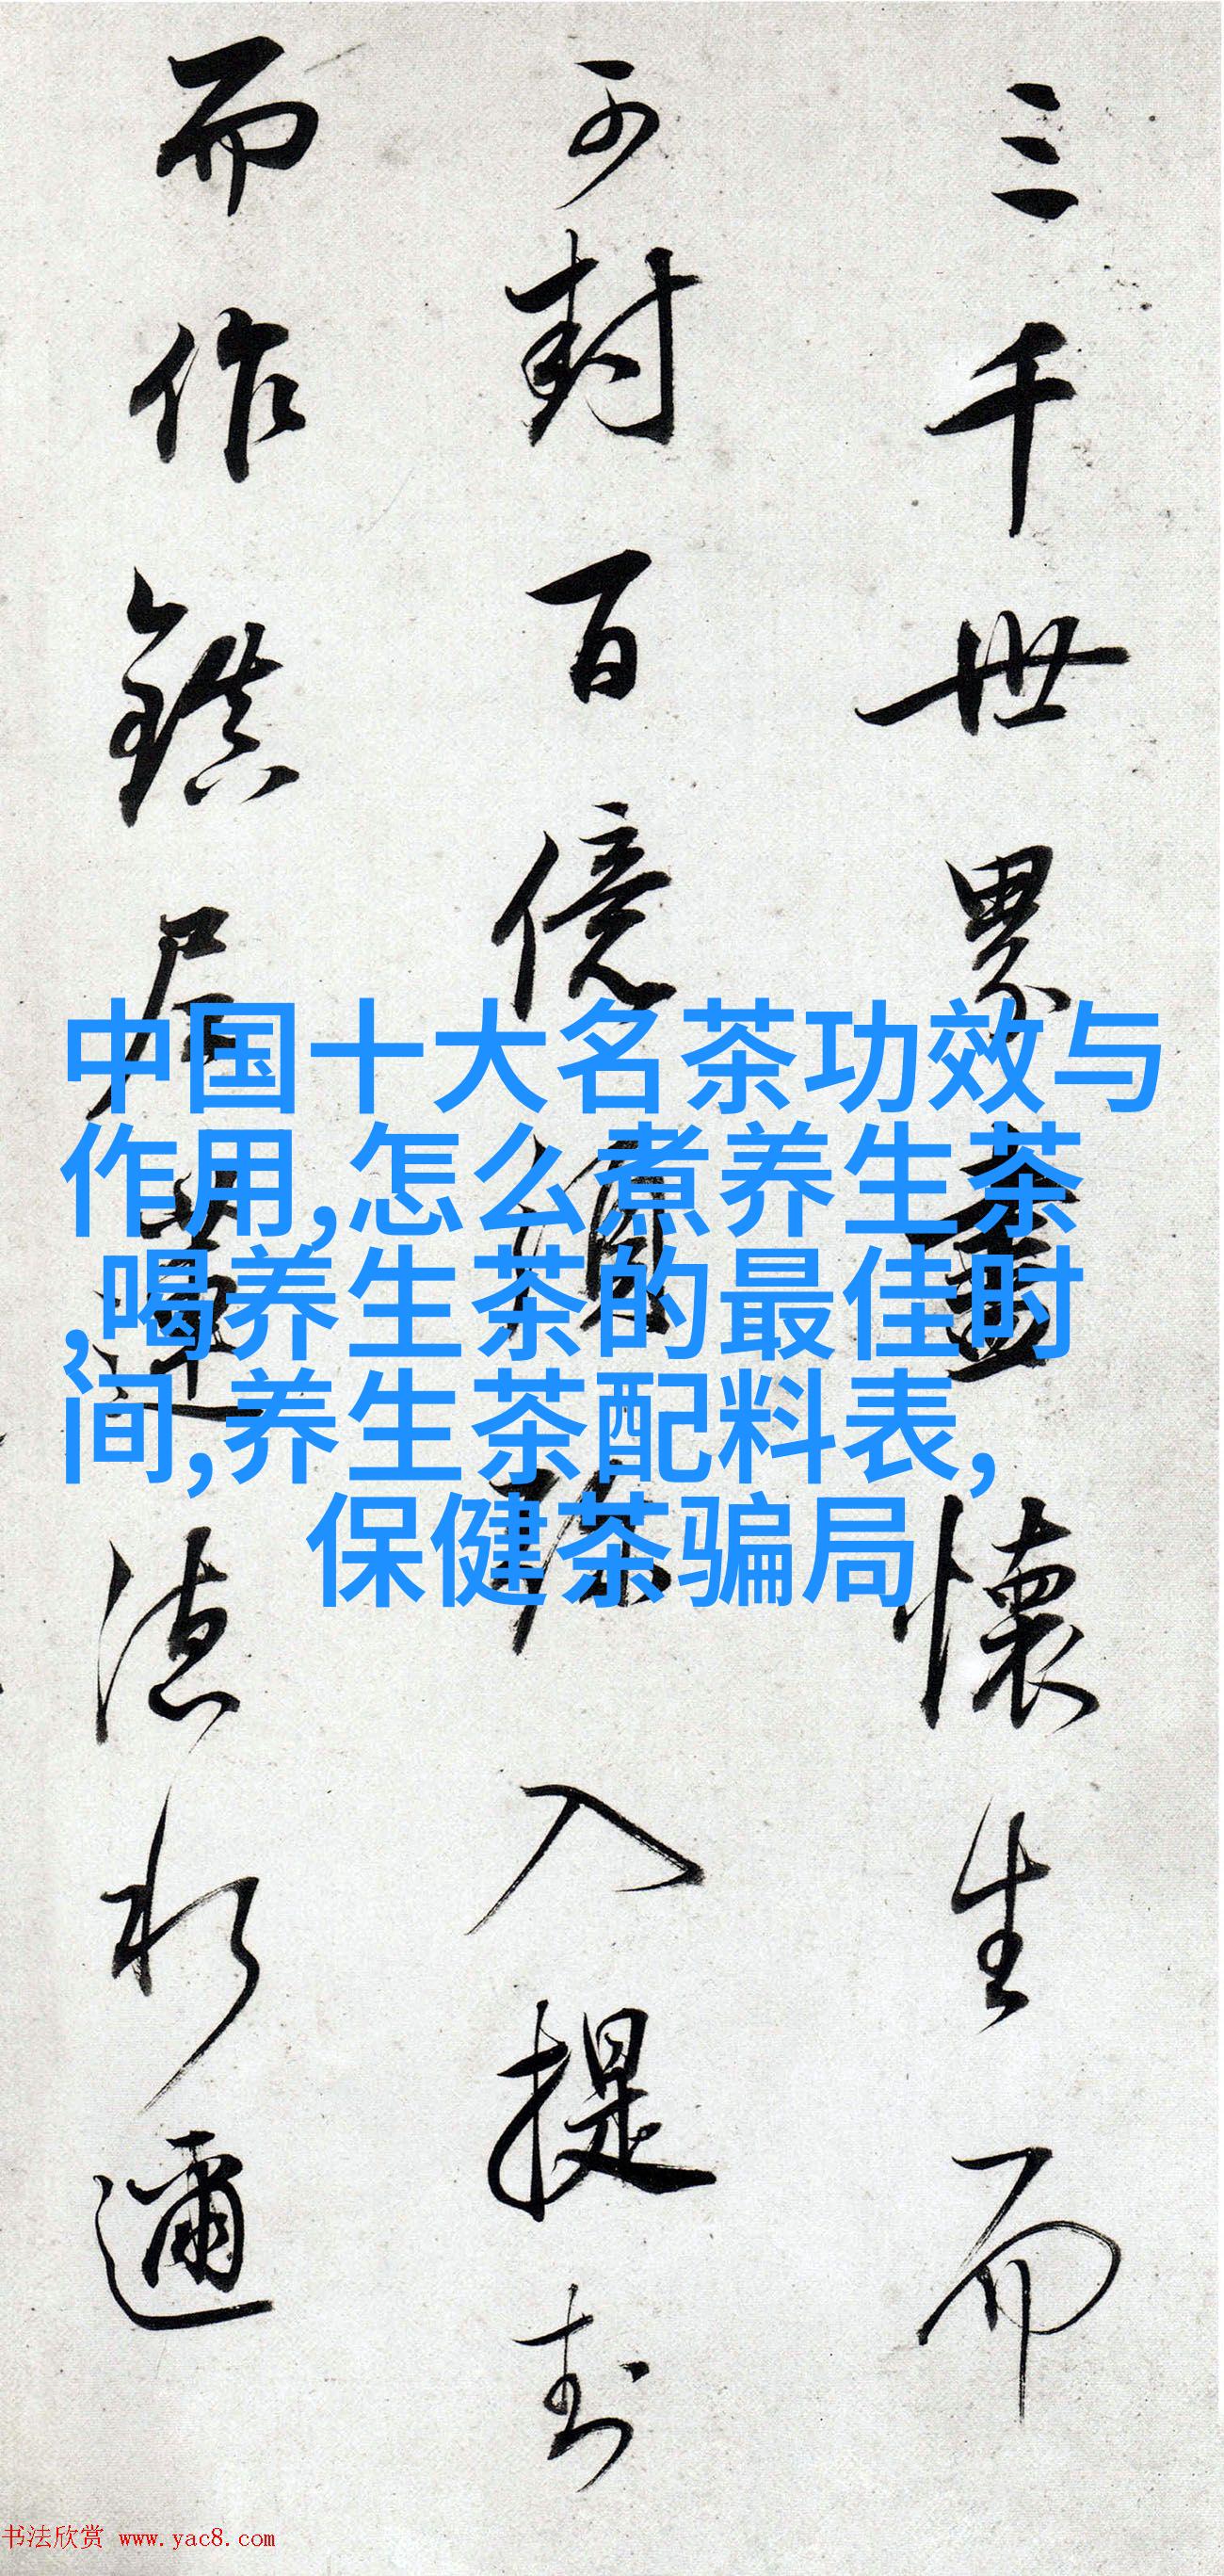 三千世界盡懷生而
可封百億須弥入提封
而作鎮居蓮
德水邇
中国十大名茶功效与
作用,怎么煮养生茶
,喝养生茶的最佳时
间,养生茶配料表,
保健茶骗局
书法欣赏 www.yac8.com